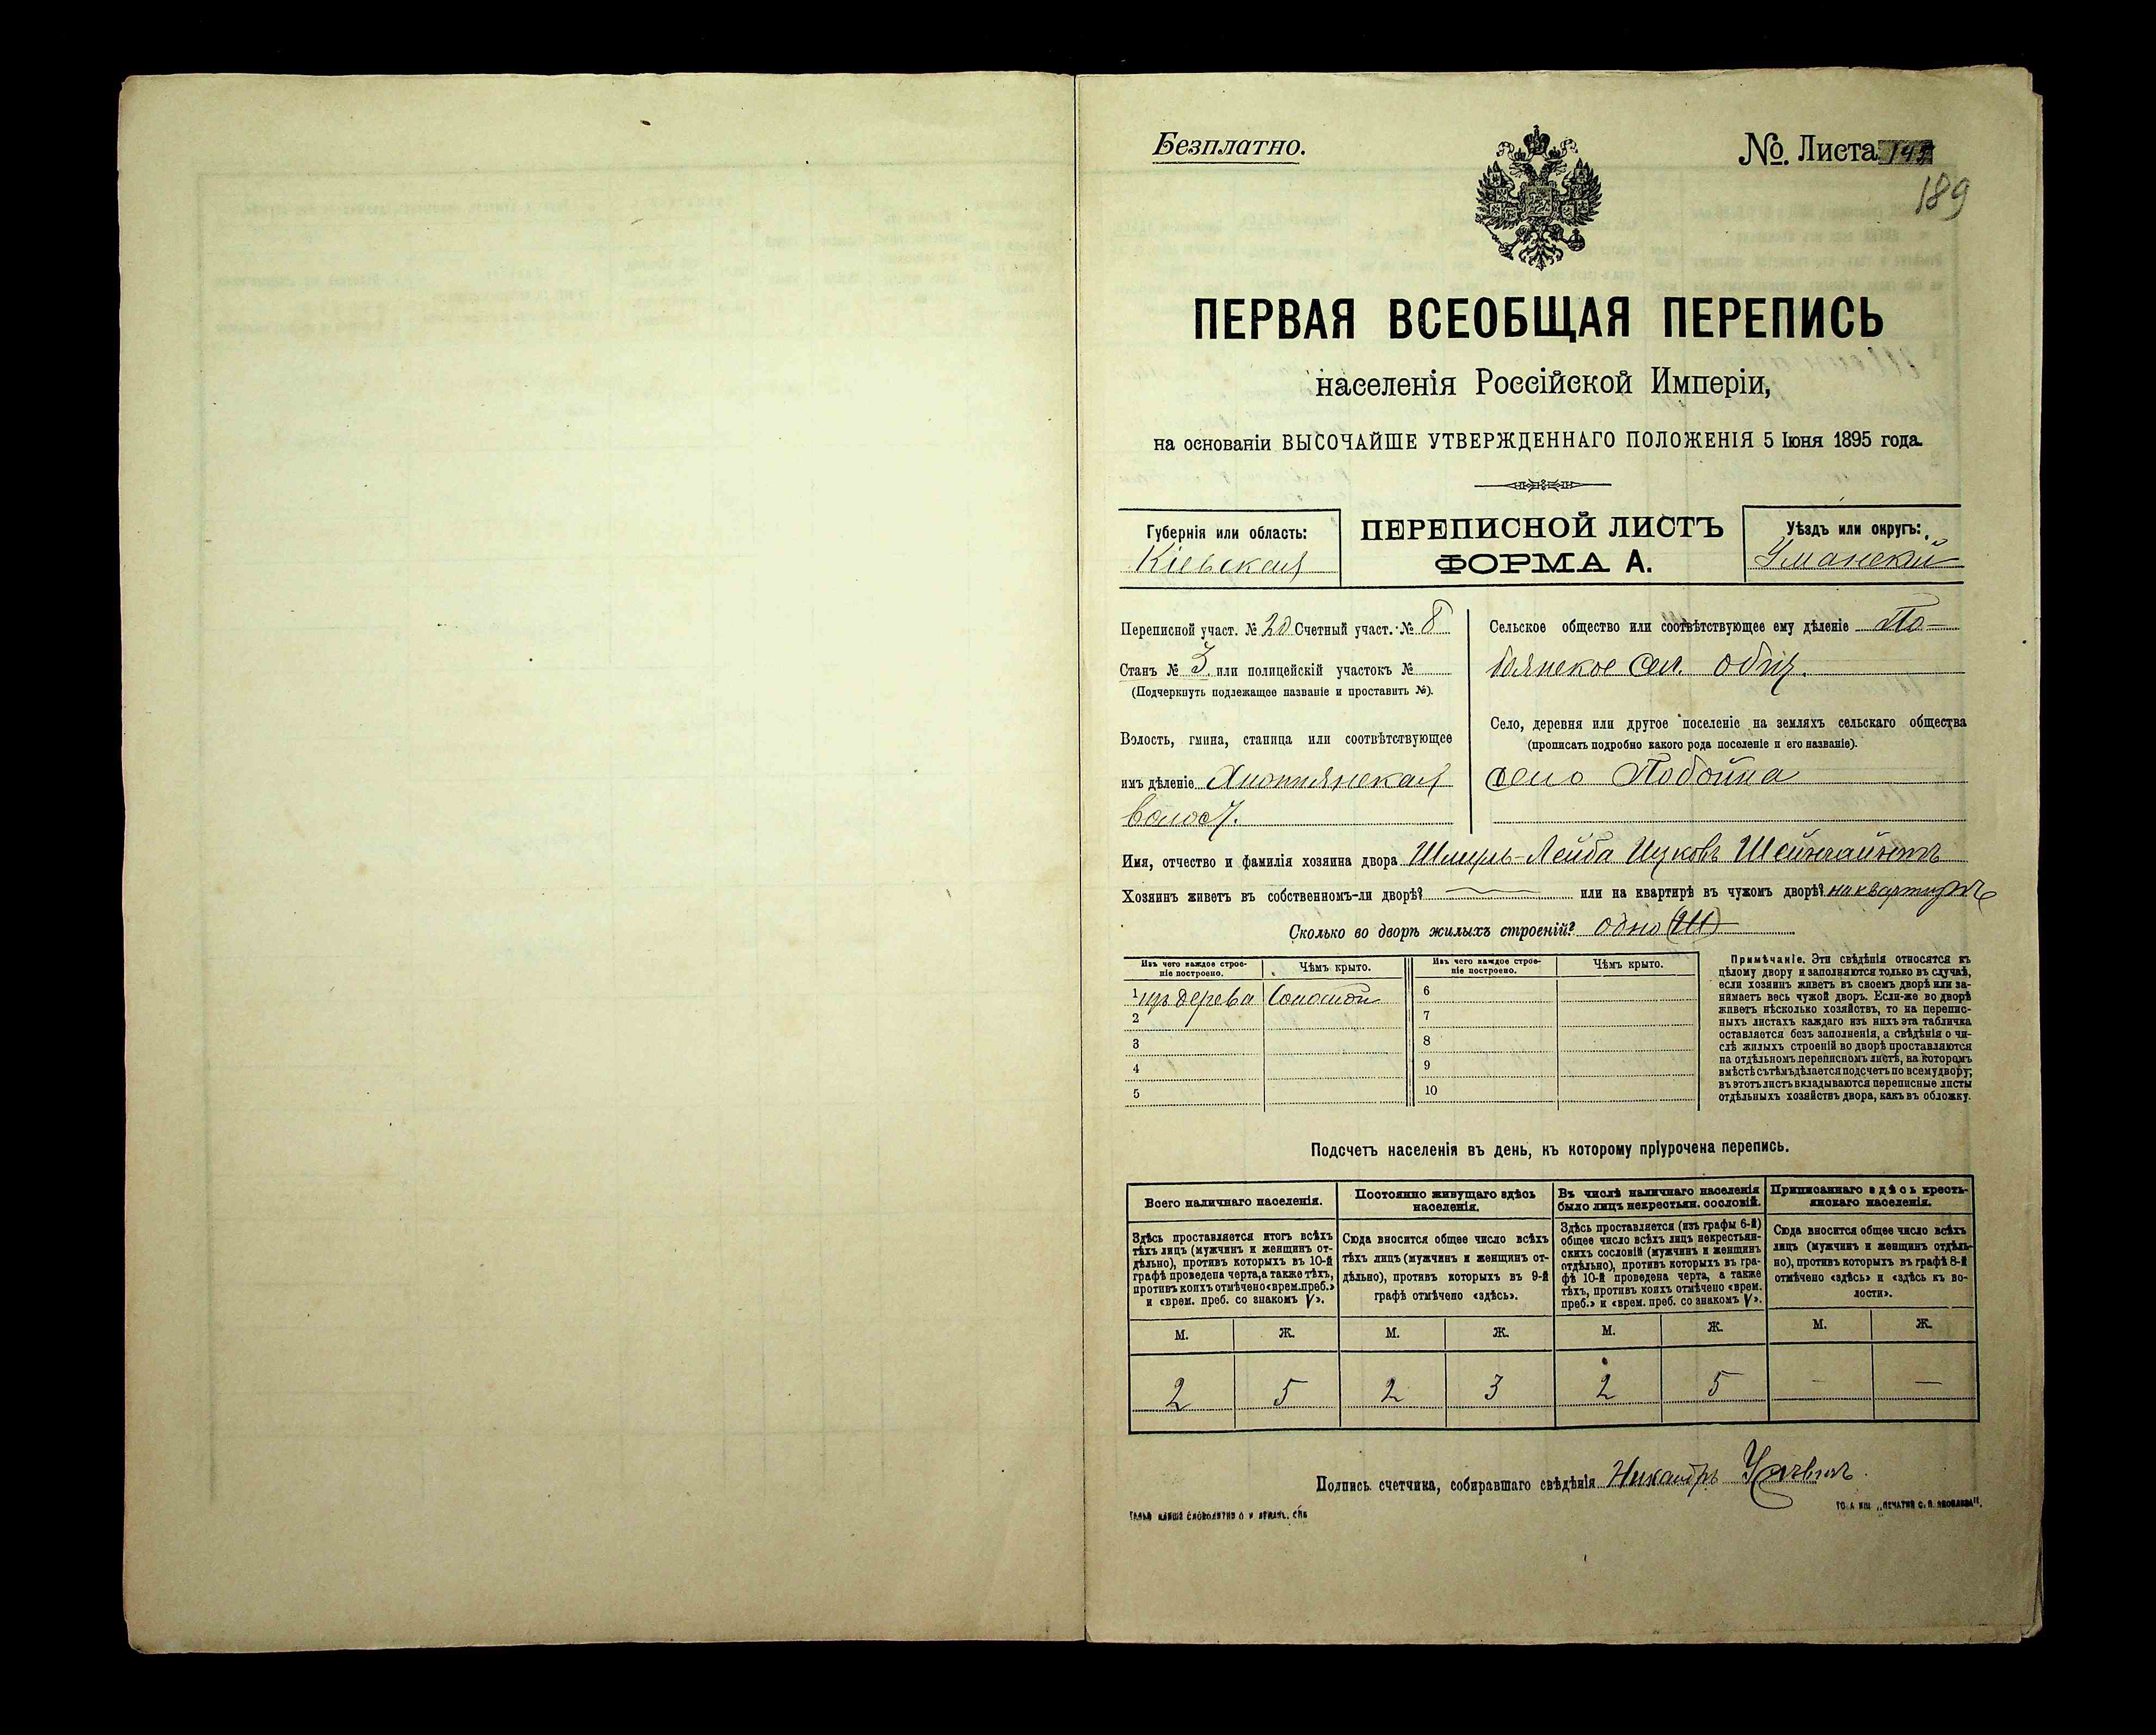 Безплатно.
№ Листа
189
ПЕРВАЯ ВСЕОБЩАЯ ПЕРЕПИСЬ
населенія Россійской Имперіи,
на основаніи ВЫСОЧАЙШЕ УТВЕРЖДЕННАГО ПОЛОЖЕНІЯ 5 Іюня 1895 года.
Губернія или область:
Кіевская
ПЕРЕПИСНОЙ ЛИСТЪ
ФОРМА А.
Уѣздъ или округъ:
Уманскій
Переписной участ. № 20 Счетный участ. № 8
Станъ № 3 или полицейскій участокъ №
(Подчеркнуть подлежащее названіе и проставить №).
Волость, гмина, станица или соотвѣтствующее
имъ дѣленіе
волост.
Сельское общество или соотвѣтствующее ему дѣленіе По-
сел. общ.
Село, деревня или другое поселеніе на земляхъ сельскаго общества
(прописать подробно какого рода поселеніе и его названіе).
село Побойна
Имя, отчество и фамилія хозяина двора Шмуль-Лейба Ицковъ
Хозяинъ живетъ въ собственномъ-ли дворѣ? или на квартирѣ въ чужомъ дворѣ? на квартирѣ
Сколько во дворѣ жилыхъ строеній? одно (1)
Изъ чего каждое строе-
ніе построено.
Чѣмъ крыто.
Изъ чего каждое строе-
ніе построено.
Чѣмъ крыто.
1 изъ дерева соломой
2
3
4
5
6
7
8
9
10
Примѣчаніе. Эти свѣдѣнія относятся къ
цѣлому двору и заполняются только въ случаѣ,
если хозяинъ живетъ въ своемъ дворѣ или за-
нимаетъ весь чужой дворъ. Если-же во дворѣ
живетъ нѣсколько хозяйствъ, то на перепис-
ныхъ листахъ каждаго изъ нихъ эта табличка
оставляется безъ заполненія, а свѣдѣнія о чи-
слѣ жилыхъ строеній во дворѣ проставляются
на отдѣльномъ переписномъ листѣ, на которомъ
вмѣстѣ съ тѣмъ дѣлается подсчетъ по всему двору;
въ этотъ листъ вкладываются переписные листы
отдѣльныхъ хозяйствъ двора, какъ въ обложку.
Подсчетъ населенія въ день, къ которому пріурочена перепись.
Всего наличнаго населенія.
Здѣсь проставляется итогъ всѣхъ
тѣхъ лицъ (мужчинъ и женщинъ от-
дѣльно), противъ которыхъ въ 10-й
графѣ проведена черта, а также тѣхъ,
противъ коихъ отмѣчено «врем. преб.»
и «врем. преб. со знакомъ V».
Постоянно живущаго здѣсь
населенія.
Сюда вносится общее число всѣхъ
тѣхъ лицъ (мужчинъ и женщинъ от-
дѣльно), противъ которыхъ въ 9-й
графѣ отмѣчено «здѣсь».
Въ числѣ наличнаго населенія
было лицъ некрестьян. сословій.
Здѣсь проставляется (изъ графы 6-й)
общее число всѣхъ лицъ некрестьян-
скихъ сословій (мужчинъ и женщинъ
отдѣльно), противъ которыхъ въ гра-
фѣ 10-й проведена черта, а также
тѣхъ, противъ коихъ отмѣчено «врем.
преб.» и «врем. преб. со знакомъ V».
Приписаннаго здѣсь кресть-
янскаго населенія.
Сюда вносится общее число всѣхъ
лицъ (мужчинъ и женщинъ отдѣль-
но), противъ которыхъ въ графѣ 8-й
отмѣчено «здѣсь» и «здѣсь къ во-
лости».
М. Ж. М. Ж. М. Ж. М. Ж.
2 5 2 3 2 5 — —
Подпись счетчика, собиравшаго свѣдѣнія Никандръ